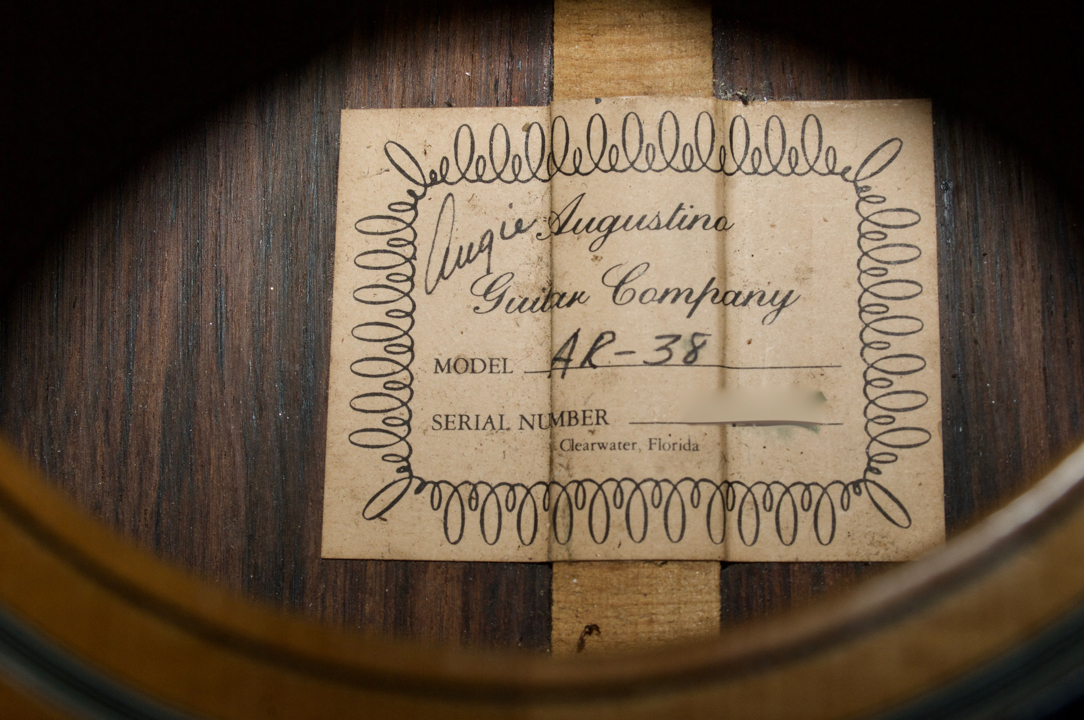 Angie Augustino
Guitar Company
MODEL AR-38
SERIAL NUMBER
Clearwater, Florida